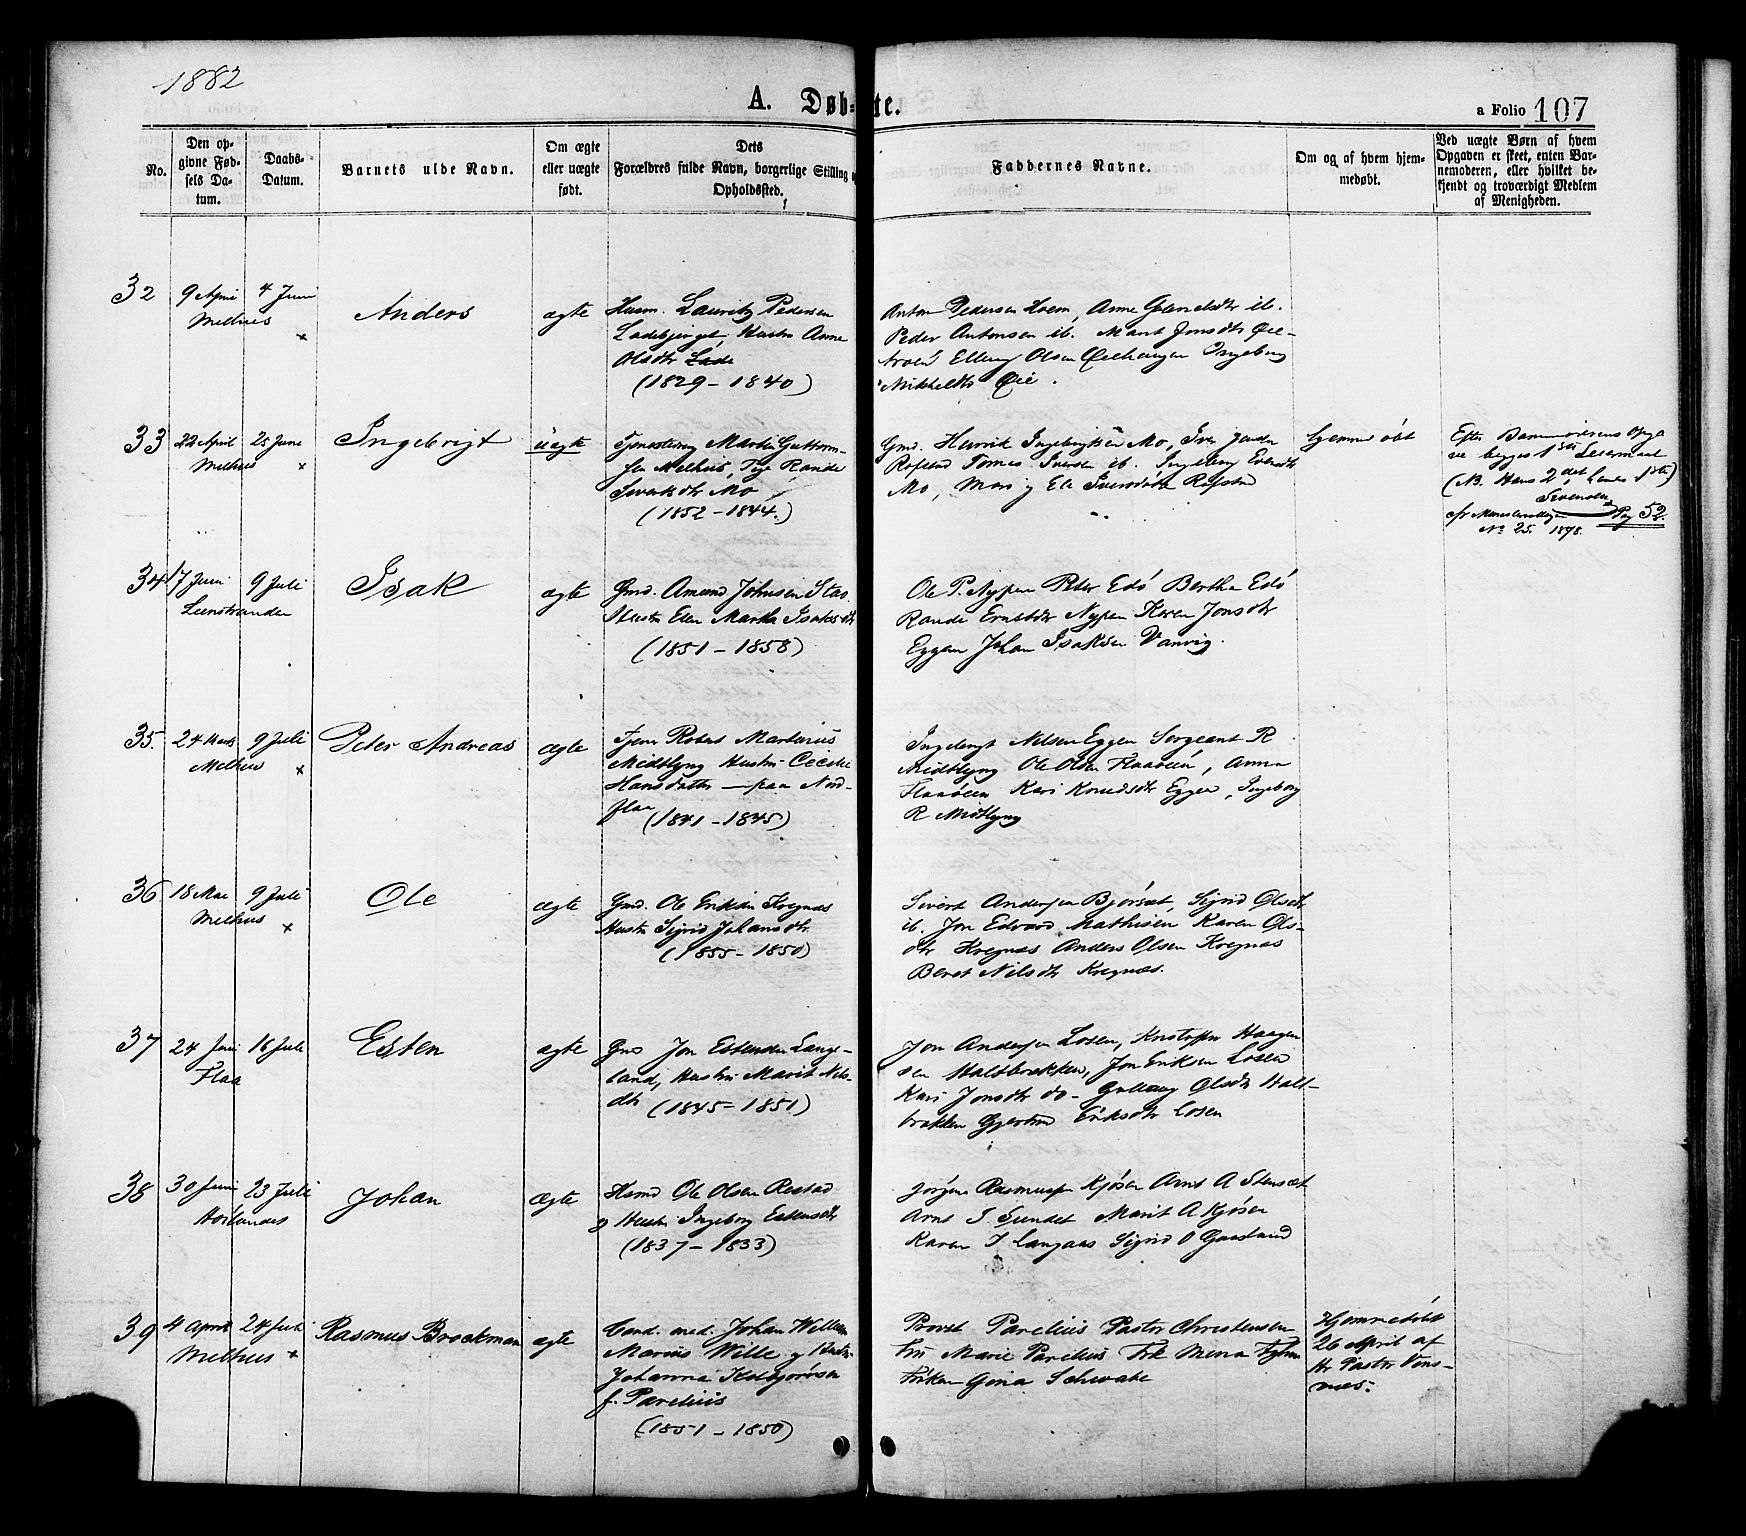 1882
A. Døb- te.
a Folio 107
No.
Den op-
givne Fød-
sels Da-
tum.
Daabs-
Datum.
Barnets ulde Navn.
Om ægte
eller uægte
født.
Dets
Forældres fulde Navn, borgerlige Stilling o
Opholdssted.
Faddernes Navne.
Om og af hvem hjem-
medøbt.
Ved uægte Børn af hvem
Opgaven er skeet, enten Bar-
nemoderen, eller hvilket be-
kjendt og troværdigt Medlem
af Menigheden.
32
9 April
4 Juni
Melhus
x
Anders
ægte
Husm. Lauritz Pedersen
Ladebjerget, Hustru Anne
Olsdtr Lade
(1829 - 1840)
Anton Pedersen Hoem, Anne ib.
Peder Antonsen ib. Marit Jonsdtr Øie-
Olsen Ingeborg
Mikkelsdtr Øie.
33
22 April
25 Juni
Melhus
x
Ingebrigt
uægte
Martin Guttorm-
sen Melhus, Pig Rande
Mo
(1852 - 1844.)
Gmd. Henrik Ingebrigtsen Mo, Iver
Tomas Iversen ib. Ingeborg
Mo, Mari og Eli Iversdtr
hjemmedøbt
Efter Barnmoderens Opga
ve begges 1ste Leiermaal
(NB. Hans 2det, hendes 1ste)
Pag 52.
No 25. 1878.
34
17 Juni
9 Juli
Leinstranden
Isak
ægte
Gmd. Amund Johnsen Stav
Hustr Ellen Martha Isaksdtr
(1851 - 1858)
Ole P. Nypen Peter Edø Bertha Edø
Rande Nypen Karen Jonsdtr
Eggen Johan Isaksen Vanvig.
35.
24 Marts
9 Juli
Melhus
x
Peter Andreas
ægte
Robert Martinius
Midtlyng Hustru Cecilie
Hansdatter - paa Nord-
flaa
(1841 - 1845)
Ingebrigt Nilsen Eggen Sergeant R
Midtlyng Ole Olsen Flaaøien, Anna
Flaaøien Kari Knudsdtr Eggen, Ingeborg
R Midtlyng
36
18 Mai
9 Juli
Melhus
x
Ole
ægte
Gmd. Ole Eriksen Kregnæs
Hustru Sigrid Johansdtr.
(1855 - 1850)
Sivert Andersen Bjørset, Sigrid Olsdtr
ib. Jon Edvard Mathisen Karen Ols-
dtr Kregnæs Anders Olsen Kregnæs
Beret Nilsdtr Kregnæs.
37
24 Juni
16 Juli
Flaa
Esten
ægte
Gmd Jon Estensen Lange-
land, Hustru Marit Nils-
dtr (1845 - 1851)
Jon Andersen Losen, Kristoffer Haagen
sen Haltbrækken, Jon Eriksen Losen
Kari Jonsdtr do- Olsdtr Halt-
brækken Gjertrud Eriksdtr Losen
38
30 Juni
23 Juli
Hølandet
Johan
ægte
Husmd Ole Olsen Restad
og Hustru Ingeborg Estensdtr
(1837 - 1833)
Jørgen Rasmussen Kjøsen Arnt A Stensæt
Arnt I Sundet Marit A Kjøsen
Karen I Langaas Sigrid O Gaasland
39
4 April
24 Juli
Melhus
x
Rasmus Brockman
ægte
Cand. med. Johan Willum
Marius Wille og Hustru
Johanna
f. Parelius
(1851 - 1850)
Provst Parelius Pastor Christensen
Fru Marie Parelius Frk Mina
Frøken Gina Schwabe
Hjemmedøbt
26 April af
Hr Pastor